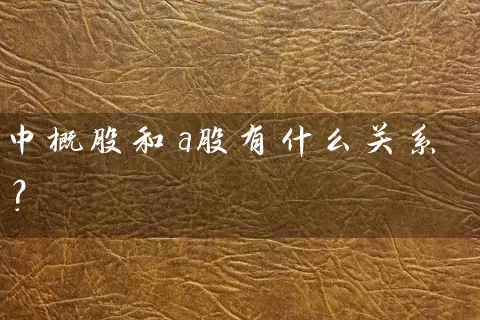 中概股和a股有什么关系
?